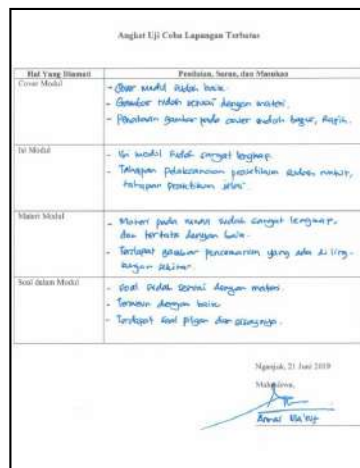 Angket Uji Coba Lapangan Terbatas
Hal Yang Diamati Penilaian, Saran, dan Masukan
Cover Modul
- Cover modul sudah baik.
- Gambar sudah sesuai dengan materi.
- Penataan gambar pada cover sudah bagus, Rapih.
Isi Modul
- Isi modul sudah sangat lengkap.
- Tahapan pelaksanaan praktikum sudah runtut,
tahapan praktikum jelas.
Materi Modul
- Materi pada modul sudah sangat lengkap,
dan tertata dengan baik.
- Terdapat gambar pencemaran yang ada di ling-
kungan sekitar.
Soal dalam Modul
- Soal sudah sesuai dengan materi.
- Tersusun dengan baik
- Terdapat soal pilgan dan essaynya.
Nganjuk, 21 Juni 2019
Mahasiswa,